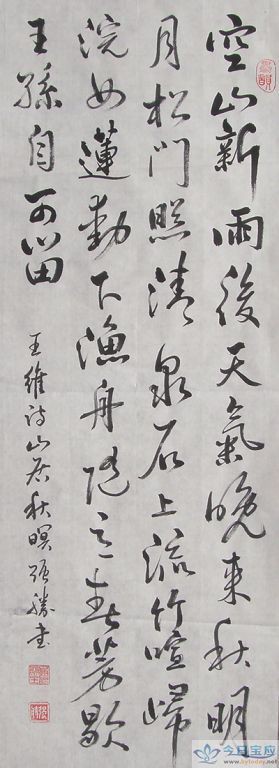 空山新雨後天氣晚來秋明
月松門照清泉石上流竹喧歸
浣女蓮動下漁舟隨意春芳歇
王孫自可留
王維詩山居秋暝
今日宝应
www.bytoday.net